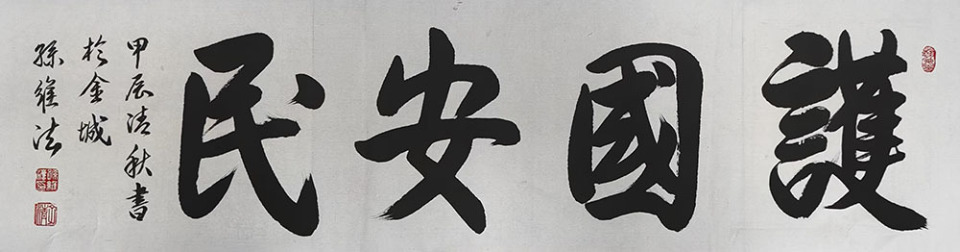 護國安民
甲辰清秋書
於金城
孫維法